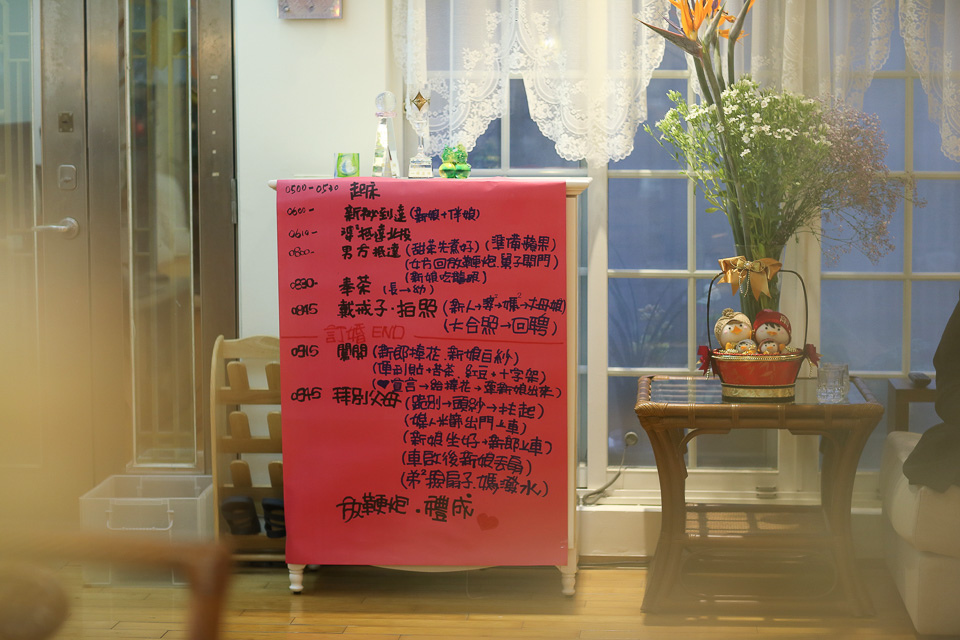 0500-0530 起床
0600- 新秘到達(新娘+伴娘)
抵達北投
0800- 男方抵達(甜菜先煮好)(準備蘋果)
(女方回放鞭炮.舅子開門)
(新娘吃雞腿)
0830- 奉茶(長→幼)
0845 戴戒子.拍照(新人→婆²→媽²→大母娘)
(大合照→回聘)
訂婚 END
0915 闖關(新郎捧花.新娘白紗)
+苦茶.紅豆+十字架)
(♥宣言→給捧花→牽新娘出來)
0945 拜別父母(跪別→頭紗→扶起)
(媒人米篩出門上車)
(新娘坐好→新郎上車)
(車啟後新娘丟扇)
(弟²撿扇子.媽潑水)
放鞭炮.禮成♥